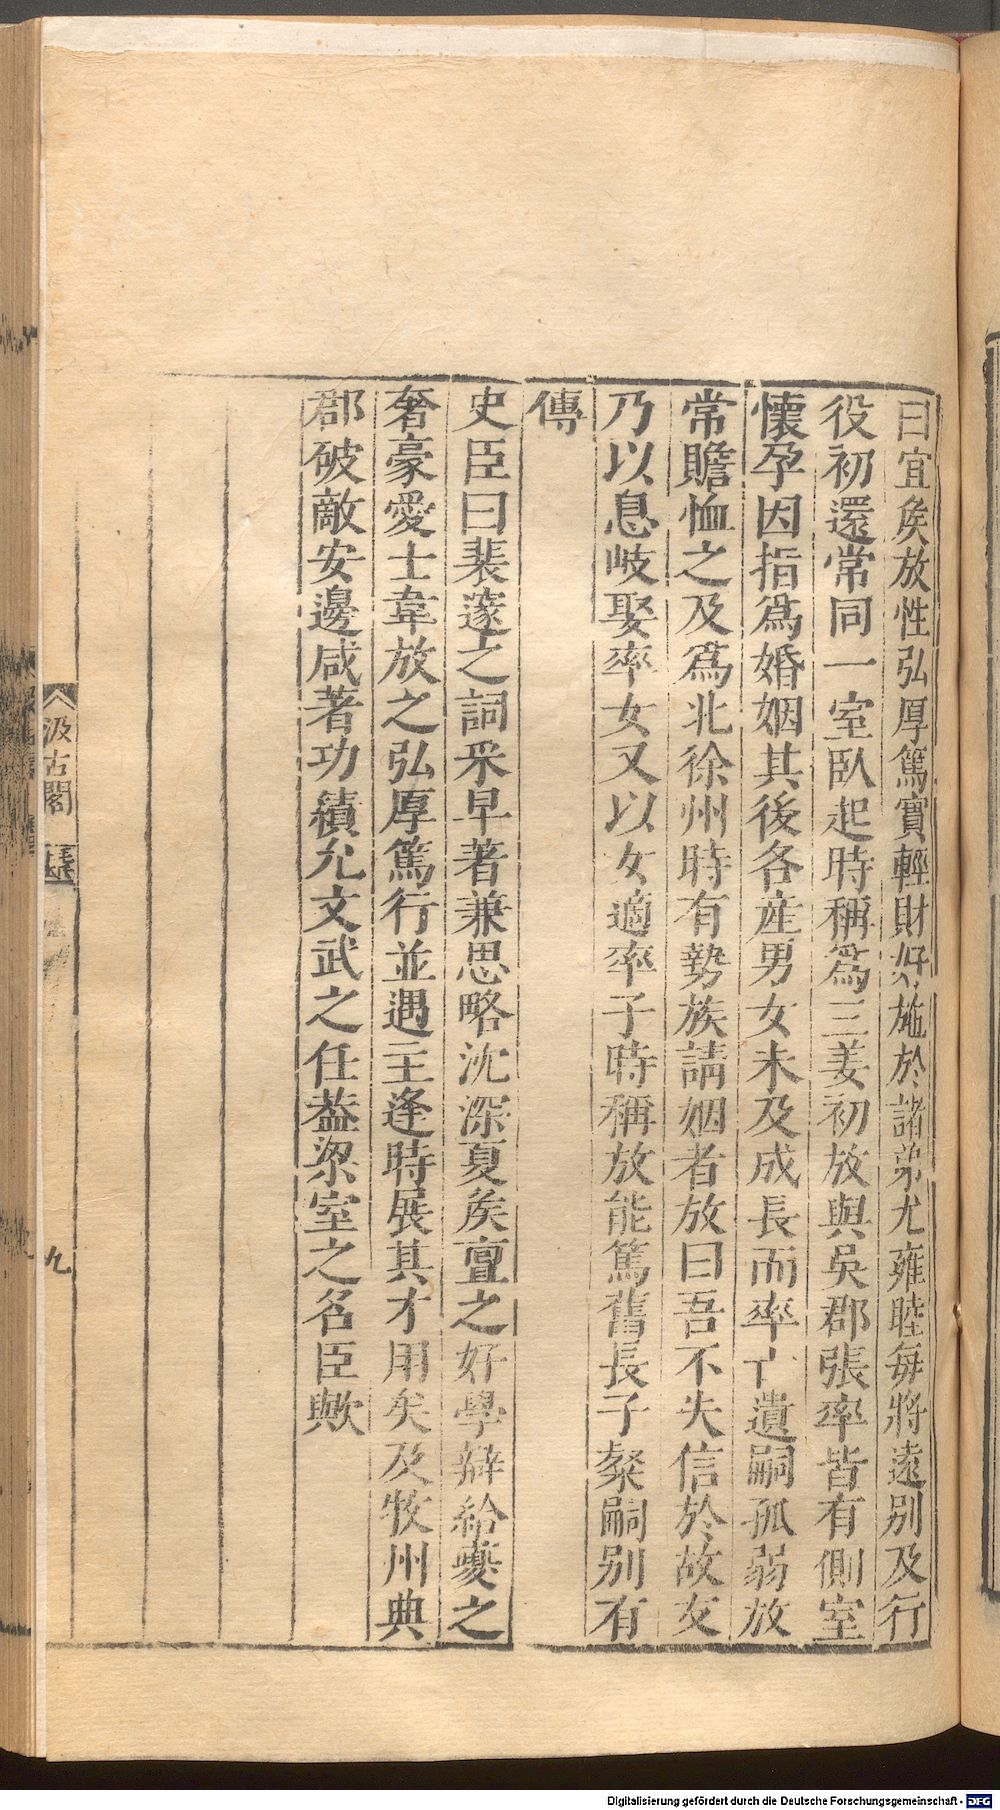 曰宜矣放性弘厚篤實輕財好施於諸弟尤雍睦每將遠别及行
役初還常同一室臥起時稱爲三姜初放與吳郡張率皆有側室
懷孕因指爲婚姻其後各産男女未及成長而率亡遺嗣孤弱放
常贍恤之及爲北徐州時有勢族請姻者放曰吾不失信於故友
乃以息岐娶率女又以女適率子時稱放能篤舊長子粲嗣别有
傳
史臣曰裴邃之詞采早著兼思略沈深夏矦亶之好學辯給夔之
奢豪愛士韋放之弘厚篤行並遇主逢時展其才用矣及牧州典
郡破敵安邊咸著功績允文武之任葢梁室之名臣歟
汲古閣
九
Digitalisierung gefördert durch die Deutsche Forschungsgemeinschaft - DFG